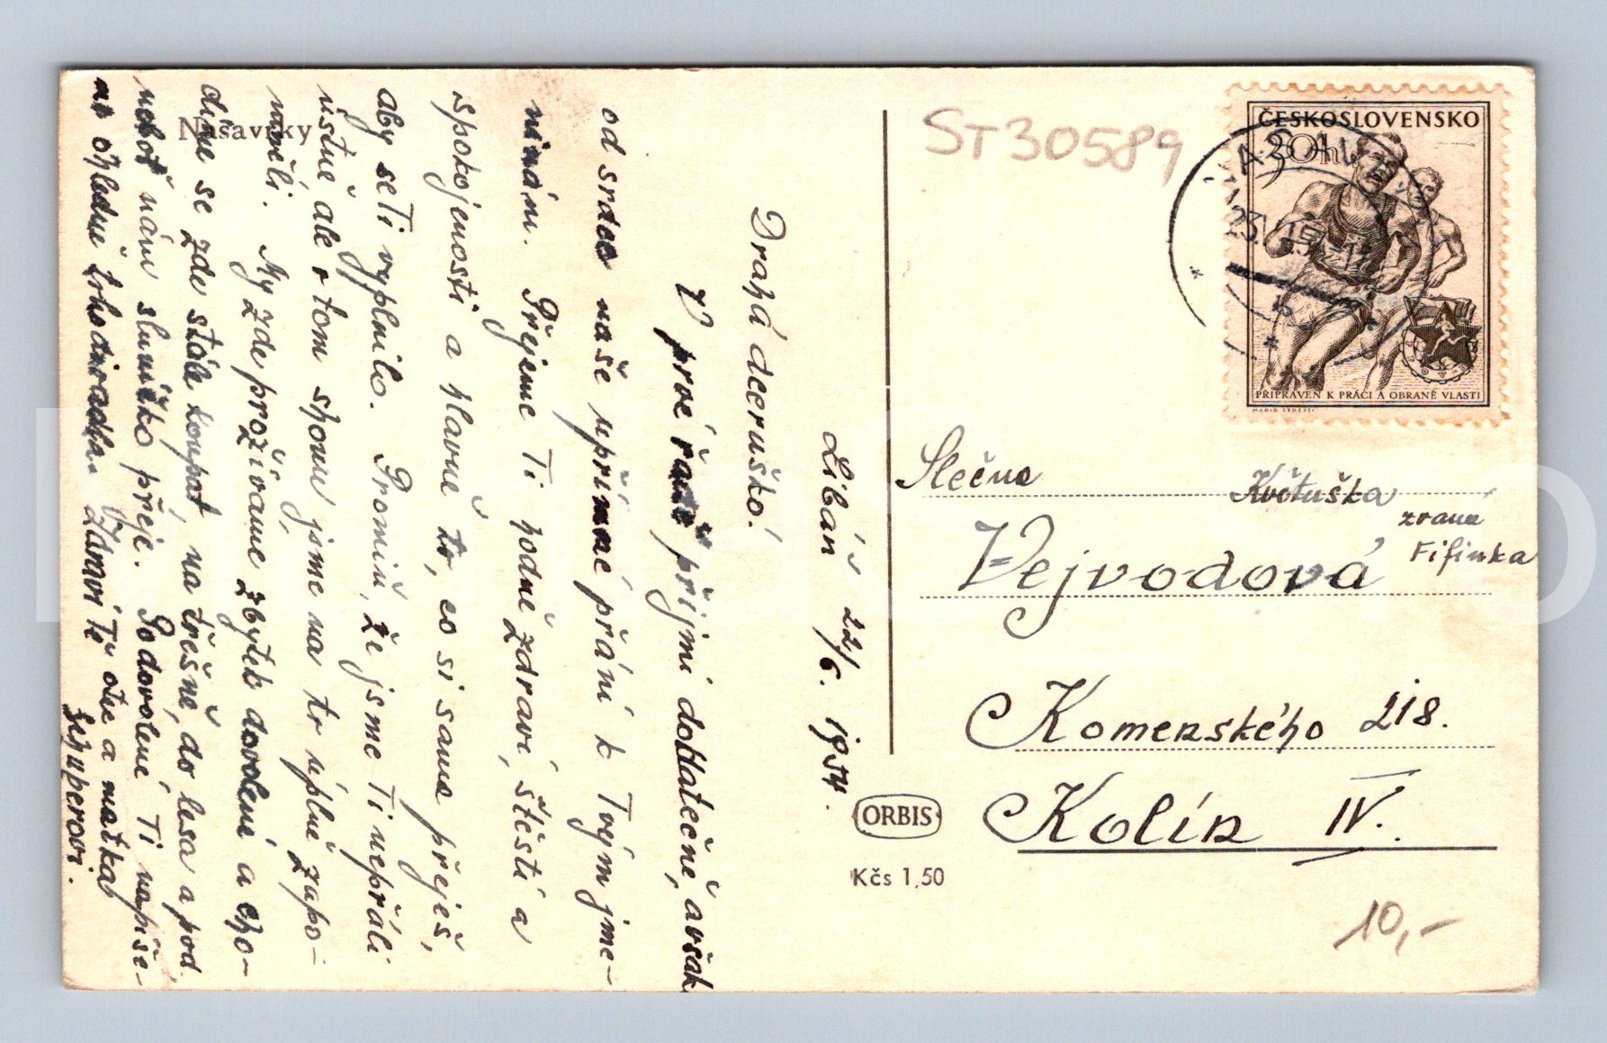 Nasavrky
Libáň 22/6. 1954.
Drahá dceruško!
V prvé řadě přijmi dodatečně, avšak
od srdce naše upřímné přání k Tvým jme-
ninám. Přejeme Ti hodně zdraví, štěstí a
spokojenosti a hlavně to, co si sama přeješ,
aby se Ti vyplnilo. Promiň, že jsme Ti nepřáli
ústně ale v tom shonu jsme na to úplně zapo-
mněli. My zde prožíváme zbytek dovolené a cho-
díme se zde stále koupat, na třešně, do lesa a pod.
neboť nám sluníčko přeje. Po dovolené Ti napíše-
me ohledně toho divadla. Zdraví Tě otec a matka
Schuperovi.
ST30589
ČESKOSLOVENSKO
30h
PŘIPRAVEN K PRÁCI A OBRANĚ VLASTI
Slečna
Květuška
zvaná
Fifinka
Vejvodová
Komenského 218.
Kolín IV.
ORBIS
Kčs 1,50
10,-